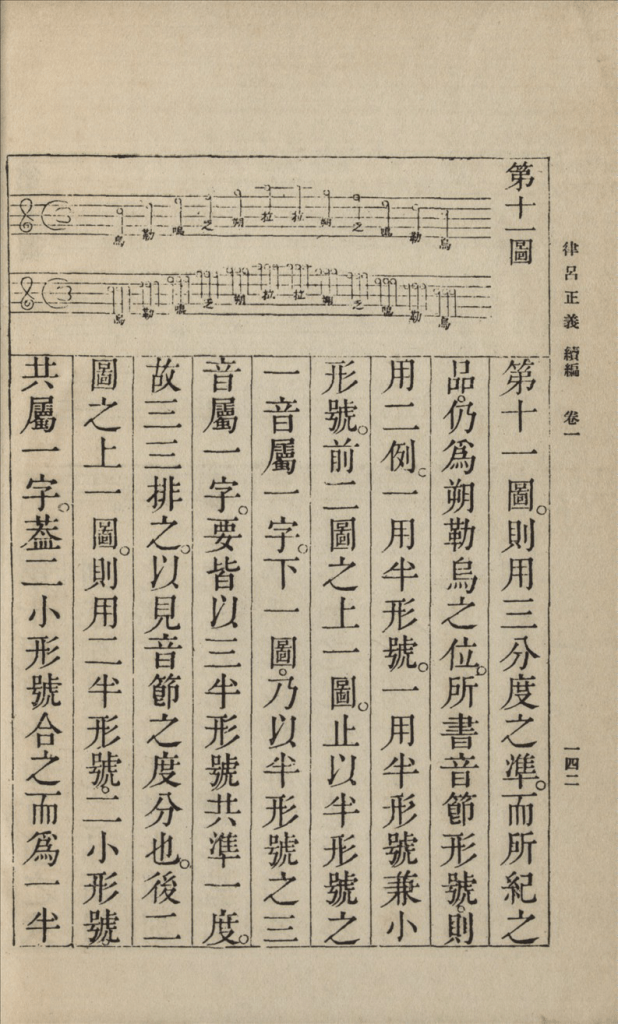 律呂正義 續編 卷一 一四二
第十一圖
烏勒鳴之朔拉拉朔之鳴勒烏
烏勒鳴之朔拉拉朔之鳴勒烏
第十一圖。則用三分度之準。而所紀之
品。仍爲朔勒烏之位。所書音節形號。則
用二例。一用半形號。一用半形號兼小
形號。前二圖之上一圖。止以半形號之
一音屬一字。下一圖。乃以半形號之三
音屬一字。要皆以三半形號共準一度。
故三三排之。以見音節之度分也。後二
圖之上一圖。則用二半形號。二小形號
共屬一字。葢二小形號合之而爲一半